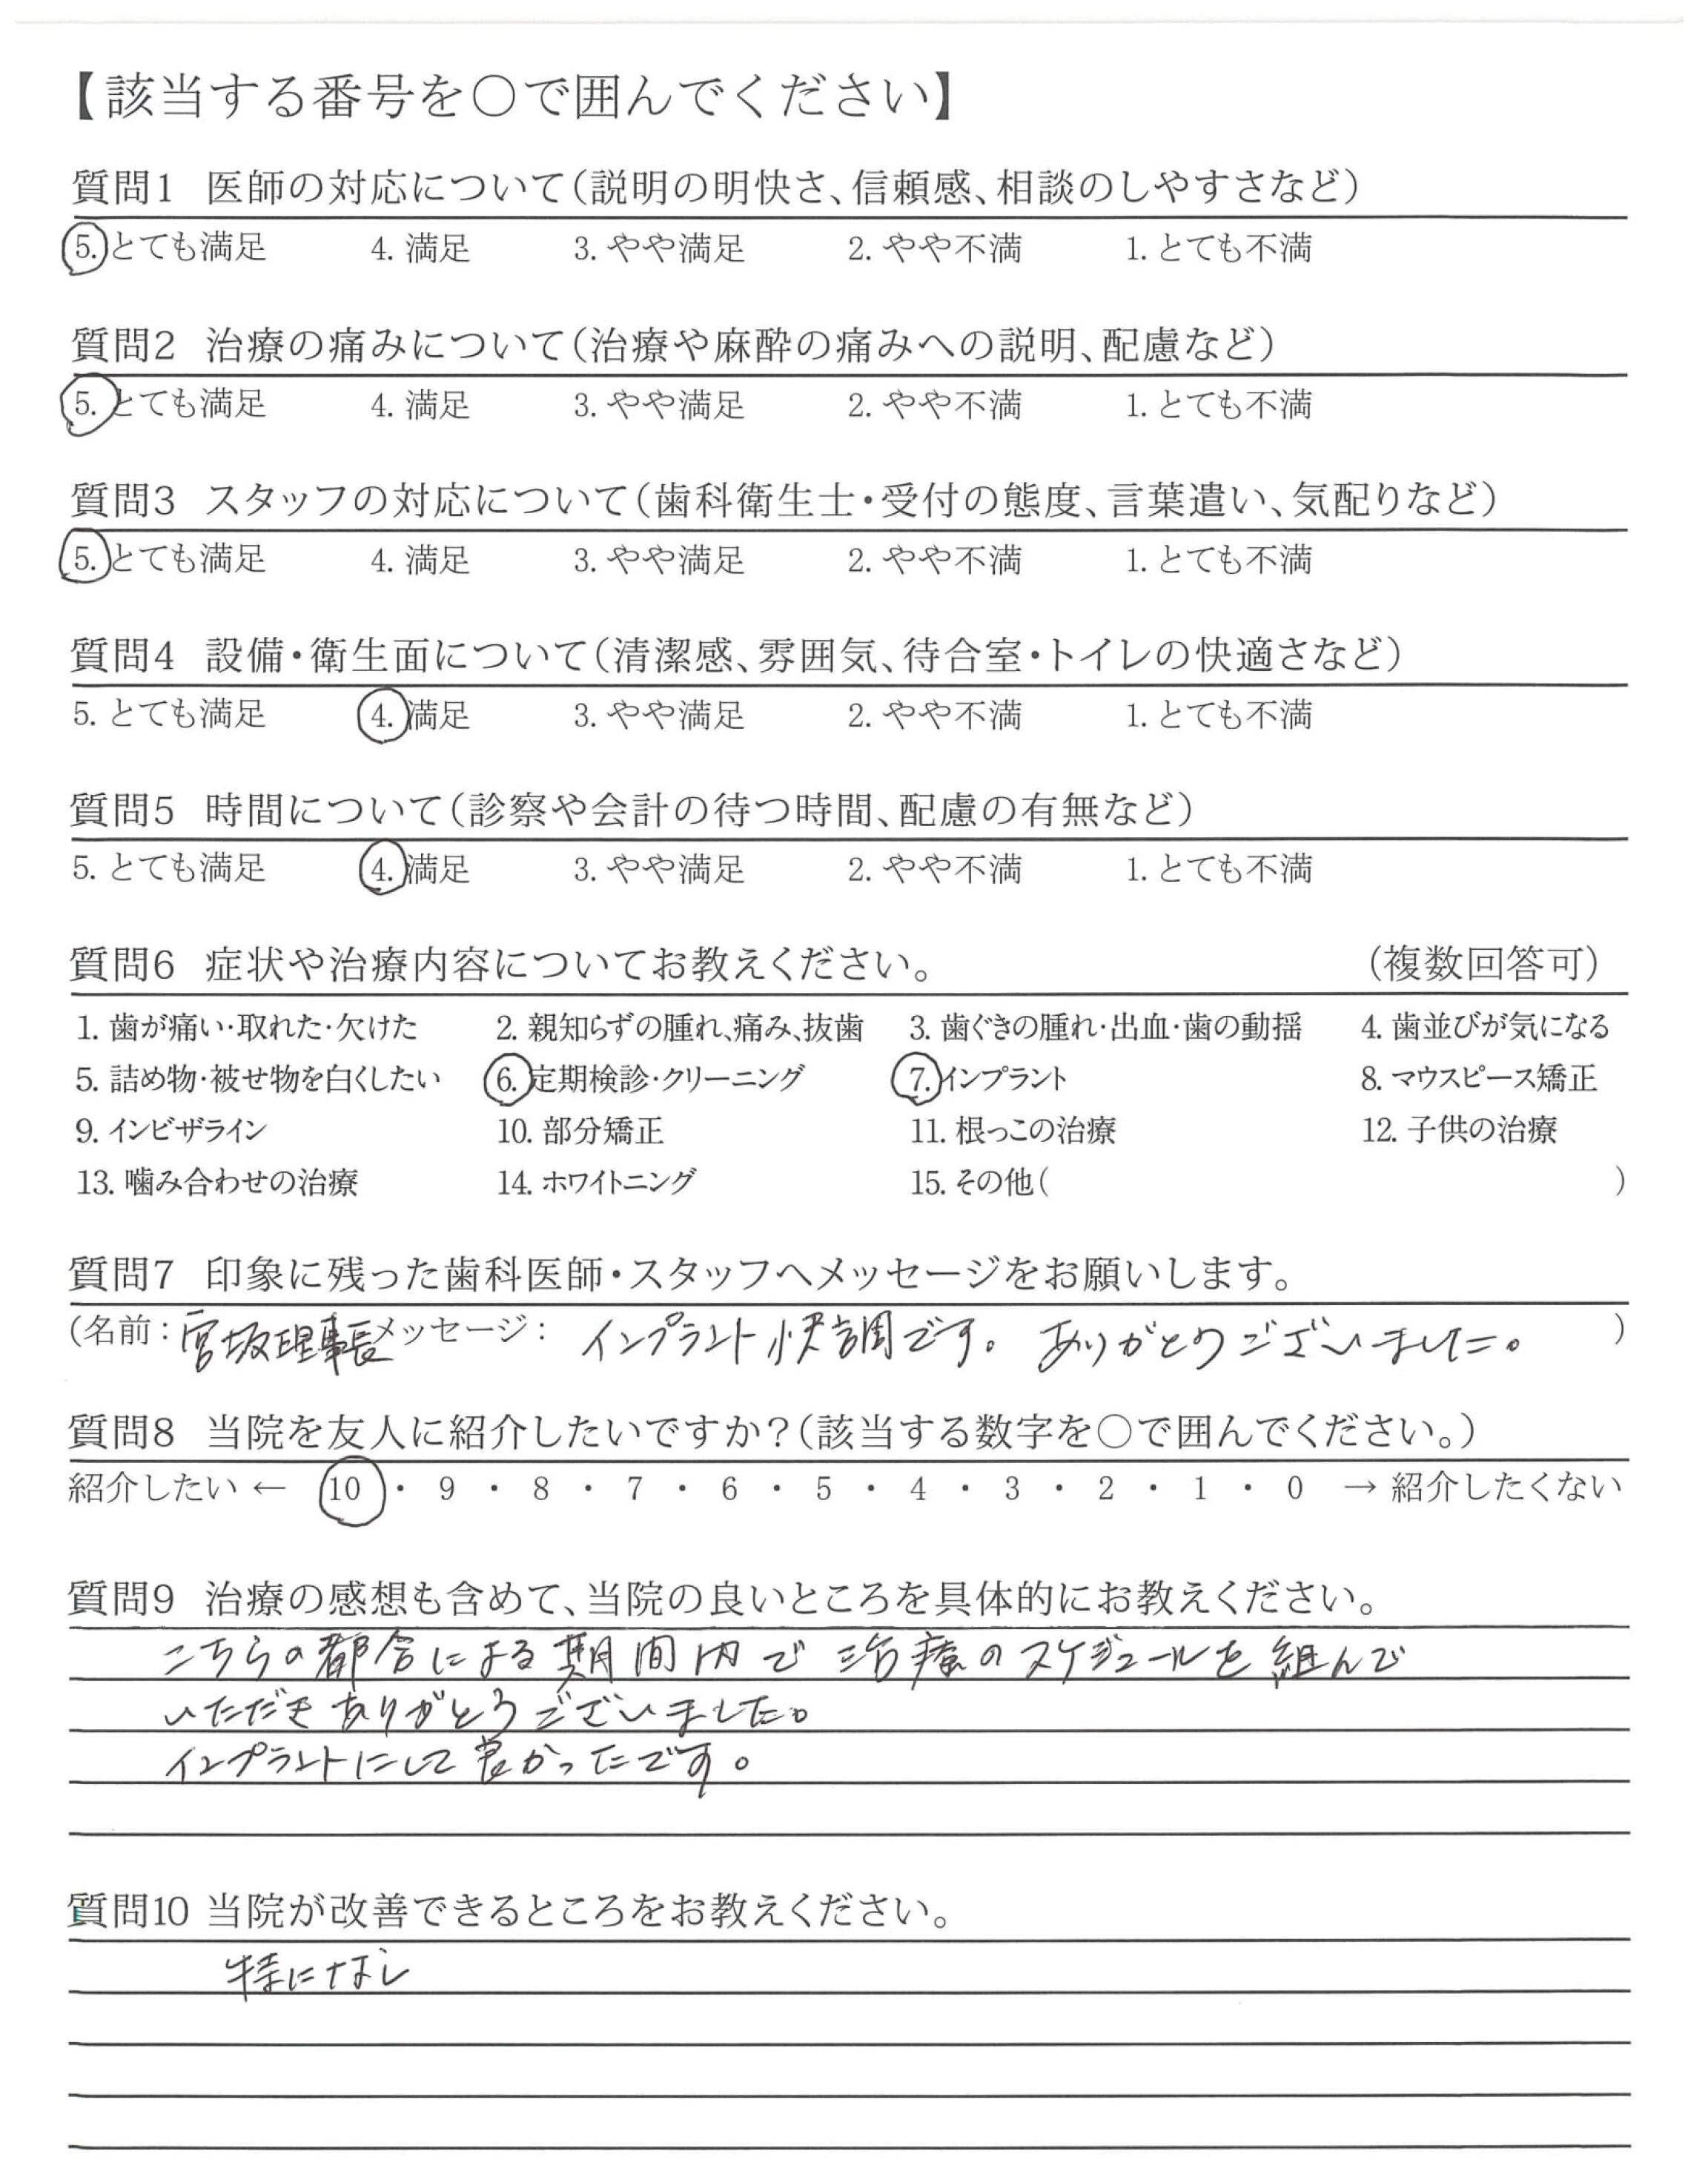 【該当する番号を○で囲んでください】
質問1 医師の対応について(説明の明快さ、信頼感、相談のしやすさなど)
5. とても満足 4. 満足 3. やや満足 2. やや不満 1. とても不満
質問2 治療の痛みについて(治療や麻酔の痛みへの説明、配慮など)
5. とても満足 4. 満足 3. やや満足 2. やや不満 1. とても不満
質問3 スタッフの対応について(歯科衛生士・受付の態度、言葉遣い、気配りなど)
5. とても満足 4. 満足 3. やや満足 2. やや不満 1. とても不満
質問4 設備・衛生面について(清潔感、雰囲気、待合室・トイレの快適さなど)
5. とても満足 4. 満足 3. やや満足 2. やや不満 1. とても不満
質問5 時間について(診察や会計の待つ時間、配慮の有無など)
5. とても満足 4. 満足 3. やや満足 2. やや不満 1. とても不満
質問6 症状や治療内容についてお教えください。 (複数回答可)
1. 歯が痛い・取れた・欠けた 2. 親知らずの腫れ、痛み、抜歯 3. 歯ぐきの腫れ・出血・歯の動揺 4. 歯並びが気になる
5. 詰め物・被せ物を白くしたい 6. 定期検診・クリーニング 7. インプラント 8. マウスピース矯正
9. インビザライン 10. 部分矯正 11. 根っこの治療 12. 子供の治療
13. 噛み合わせの治療 14. ホワイトニング 15. その他( )
質問7 印象に残った歯科医師・スタッフへメッセージをお願いします。
(名前：宮坂理事長 メッセージ： インプラント快調です。ありがとうございました。 )
質問8 当院を友人に紹介したいですか？(該当する数字を○で囲んでください。)
紹介したい ← 10 ・ 9 ・ 8 ・ 7 ・ 6 ・ 5 ・ 4 ・ 3 ・ 2 ・ 1 ・ 0 → 紹介したくない
質問9 治療の感想も含めて、当院の良いところを具体的にお教えください。
こちらの都合による期間内で治療のスケジュールを組んで
いただきありがとうございました。
インプラントにして良かったです。
質問10 当院が改善できるところをお教えください。
特になし